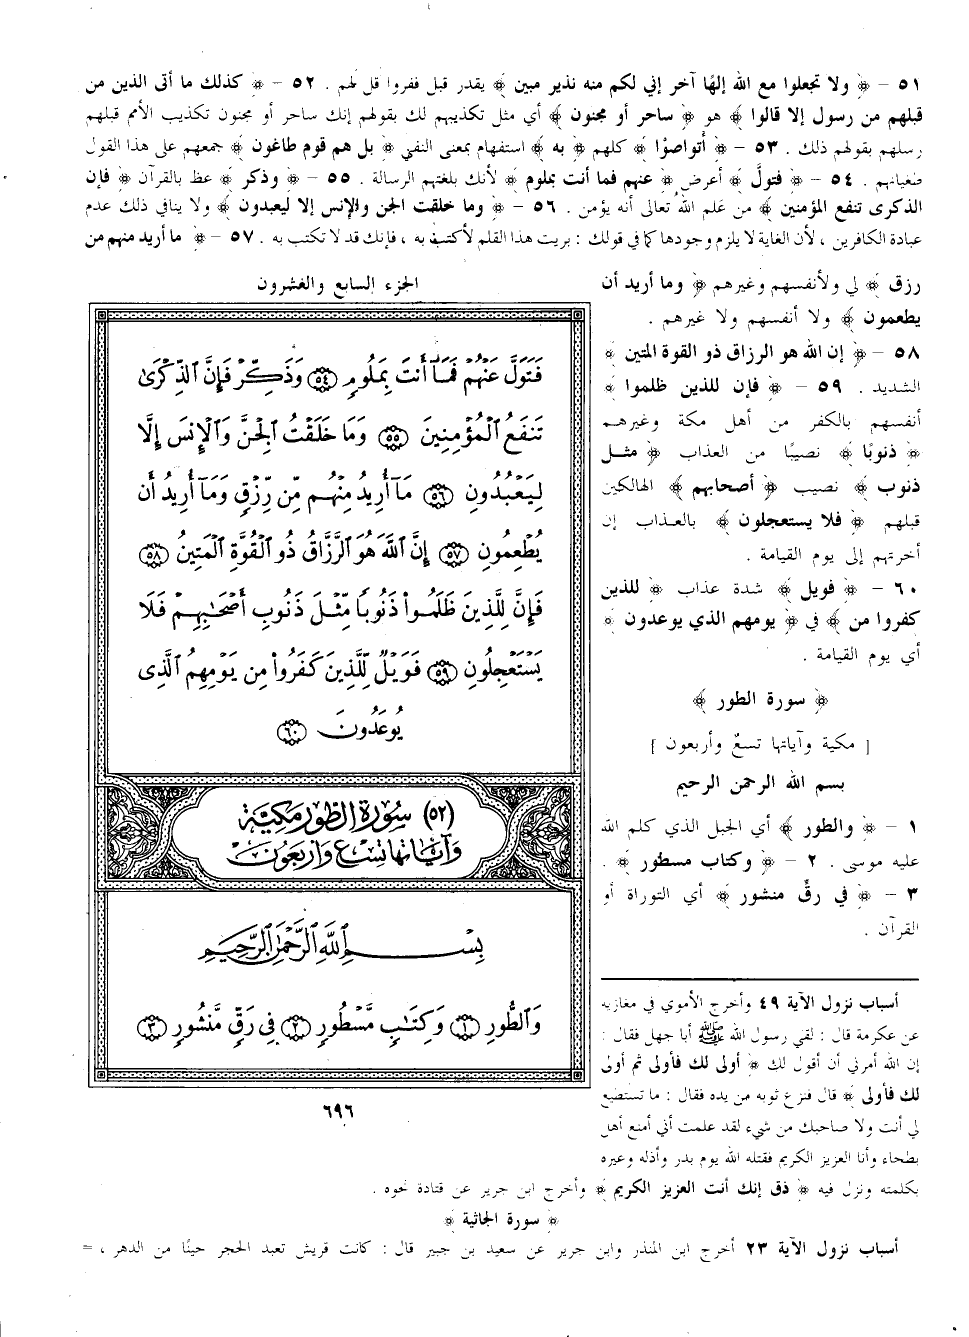 ٥١ – ﴿ ولا تجعلوا مع الله إلهًا آخر إني لكم منه نذير مبين ﴾ يقدر قبل ففروا قل لهم . ٥٢ – ﴿ كذلك ما أتى الذين من
قبلهم من رسول إلا قالوا ﴾ هو ﴿ ساحر أو مجنون ﴾ أي مثل تكذيبهم لك بقولهم إنك ساحر أو مجنون تكذيب الأمم قبلهم
رسلهم بقولهم ذلك . ٥٣ – ﴿ أتواصوْا ﴾ كلهم ﴿ به ﴾ استفهام بمعنى النفي ﴿ بل هم قوم طاغون ﴾ جمعهم على هذا القول
طغيانهم . ٥٤ – ﴿ فتولَّ ﴾ أعرض ﴿ عنهم فما أنت بملوم ﴾ لأنك بلغتهم الرسالة . ٥٥ – ﴿ وذكر ﴾ عظ بالقرآن ﴿ فإن
الذكرى تنفع المؤمنين ﴾ من عَلم اللهُ تعالى أنه يؤمن . ٥٦ – ﴿ وما خلقت الجن والإنس إلا ليعبدون ﴾ ولا ينافي ذلك عدم
عبادة الكافرين ، لأن الغاية لا يلزم وجودها كما في قولك : بريت هذا القلم لأكتب به ، فإنك قد لا تكتب به . ٥٧ – ﴿ ما أريد منهم من
رزق ﴾ لي ولأنفسهم وغيرهم ﴿ وما أريد أن
يطعمون ﴾ ولا أنفسهم ولا غيرهم .
٥٨ – ﴿ إن الله هو الرزاق ذو القوة المتين ﴾
الشديد . ٥٩ – ﴿ فإن للذين ظلموا ﴾
أنفسهم بالكفر من أهل مكة وغيرهم
﴿ ذنوبًا ﴾ نصيبًا من العذاب ﴿ مثل
ذنوب ﴾ نصيب ﴿ أصحابهم ﴾ الهالكين
قبلهم ﴿ فلا يستعجلون ﴾ بالعذاب إن
أخرتهم إلى يوم القيامة .
٦٠ – ﴿ فويل ﴾ شدة عذاب ﴿ للذين
كفروا من ﴾ في ﴿ يومهم الذي يوعدون ﴾
أي يوم القيامة .
﴿ سورة الطور ﴾
[ مكية وآياتها تسعٌ وأربعون ]
بسم الله الرحمن الرحيم
١ – ﴿ والطور ﴾ أي الجبل الذي كلم الله
عليه موسى . ٢ – ﴿ وكتاب مسطور ﴾ .
٣ – ﴿ في رقٍّ منشور ﴾ أي التوراة أو
القرآن .
الجزء السابع والعشرون
فَتَوَلَّ عَنْهُمْ فَمَآ أَنتَ بِمَلُومٍ ٥٤ وَذَكِّرْ فَإِنَّ ٱلذِّكْرَىٰ
تَنفَعُ ٱلْمُؤْمِنِينَ ٥٥ وَمَا خَلَقْتُ ٱلْجِنَّ وَٱلْإِنسَ إِلَّا
لِيَعْبُدُونِ ٥٦ مَآ أُرِيدُ مِنْهُم مِّن رِّزْقٍ وَمَآ أُرِيدُ أَن
يُطْعِمُونِ ٥٧ إِنَّ ٱللَّهَ هُوَ ٱلرَّزَّاقُ ذُو ٱلْقُوَّةِ ٱلْمَتِينُ ٥٨
فَإِنَّ لِلَّذِينَ ظَلَمُوا۟ ذَنُوبًا مِّثْلَ ذَنُوبِ أَصْحَٰبِهِمْ فَلَا
يَسْتَعْجِلُونِ ٥٩ فَوَيْلٌ لِّلَّذِينَ كَفَرُوا۟ مِن يَوْمِهِمُ ٱلَّذِى
يُوعَدُونَ ٦٠
(٥٢) سُورَةُ الطُّورِ مَكِيَّة
وَآيَاتُهَا تِسْعٌ وَأَرْبَعُونَ
بِسْمِ ٱللَّهِ ٱلرَّحْمَٰنِ ٱلرَّحِيمِ
وَٱلطُّورِ ١ وَكِتَٰبٍ مَّسْطُورٍ ٢ فِى رَقٍّ مَّنشُورٍ ٣
٦٩٦
أسباب نزول الآية ٤٩ وأخرج الأموي في مغازيه
عن عكرمة قال : لقي رسول الله ﷺ أبا جهل فقال :
إن الله أمرني أن أقول لك ﴿ أولى لك فأولى ثم أولى
لك فأولى ﴾ قال فنزع ثوبه من يده فقال : ما تستطيع
لي أنت ولا صاحبك من شيء لقد علمت أني أمنع أهل
بطحاء وأنا العزيز الكريم فقتله الله يوم بدر وأذله وعيره
بكلمته ونزل فيه ﴿ ذق إنك أنت العزيز الكريم ﴾ وأخرج ابن جرير عن قتادة نحوه .
﴿ سورة الجاثية ﴾
أسباب نزول الآية ٢٣ أخرج ابن المنذر وابن جرير عن سعيد بن جبير قال : كانت قريش تعبد الحجر حينًا من الدهر ، =